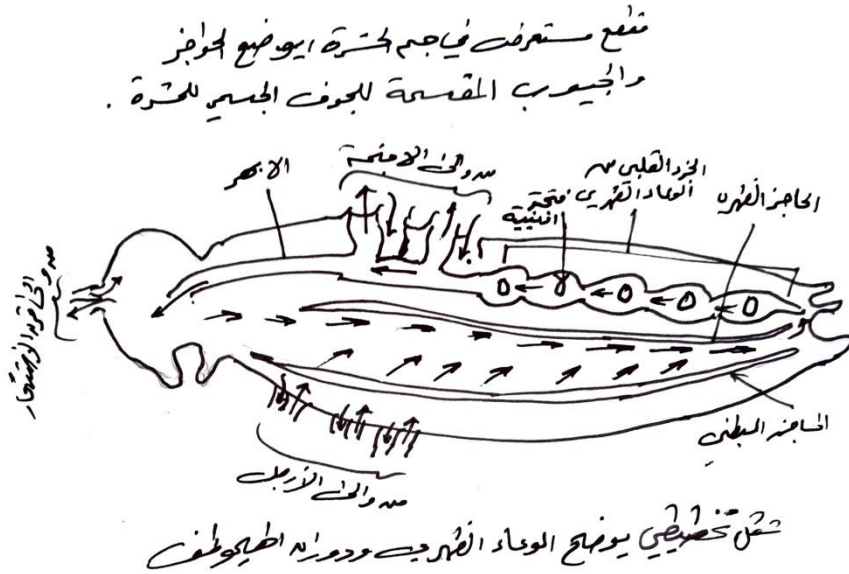 مقطع مستعرض في جسم الحشرة ايوضع الحواجز
والجيوب المقسمة للجوف الجسمي للحشرة .
من والى الاجنحة
الابهر
الجزء القلبي من
الوعاء الظهري
فتحة
اذينية
الحاجز الظهري
من والى قرون الاستشعار
الحاجز البطني
من والى الأرجل
شكل تخطيطي يوضح الوعاء الظهري ودوران الهيموليمف